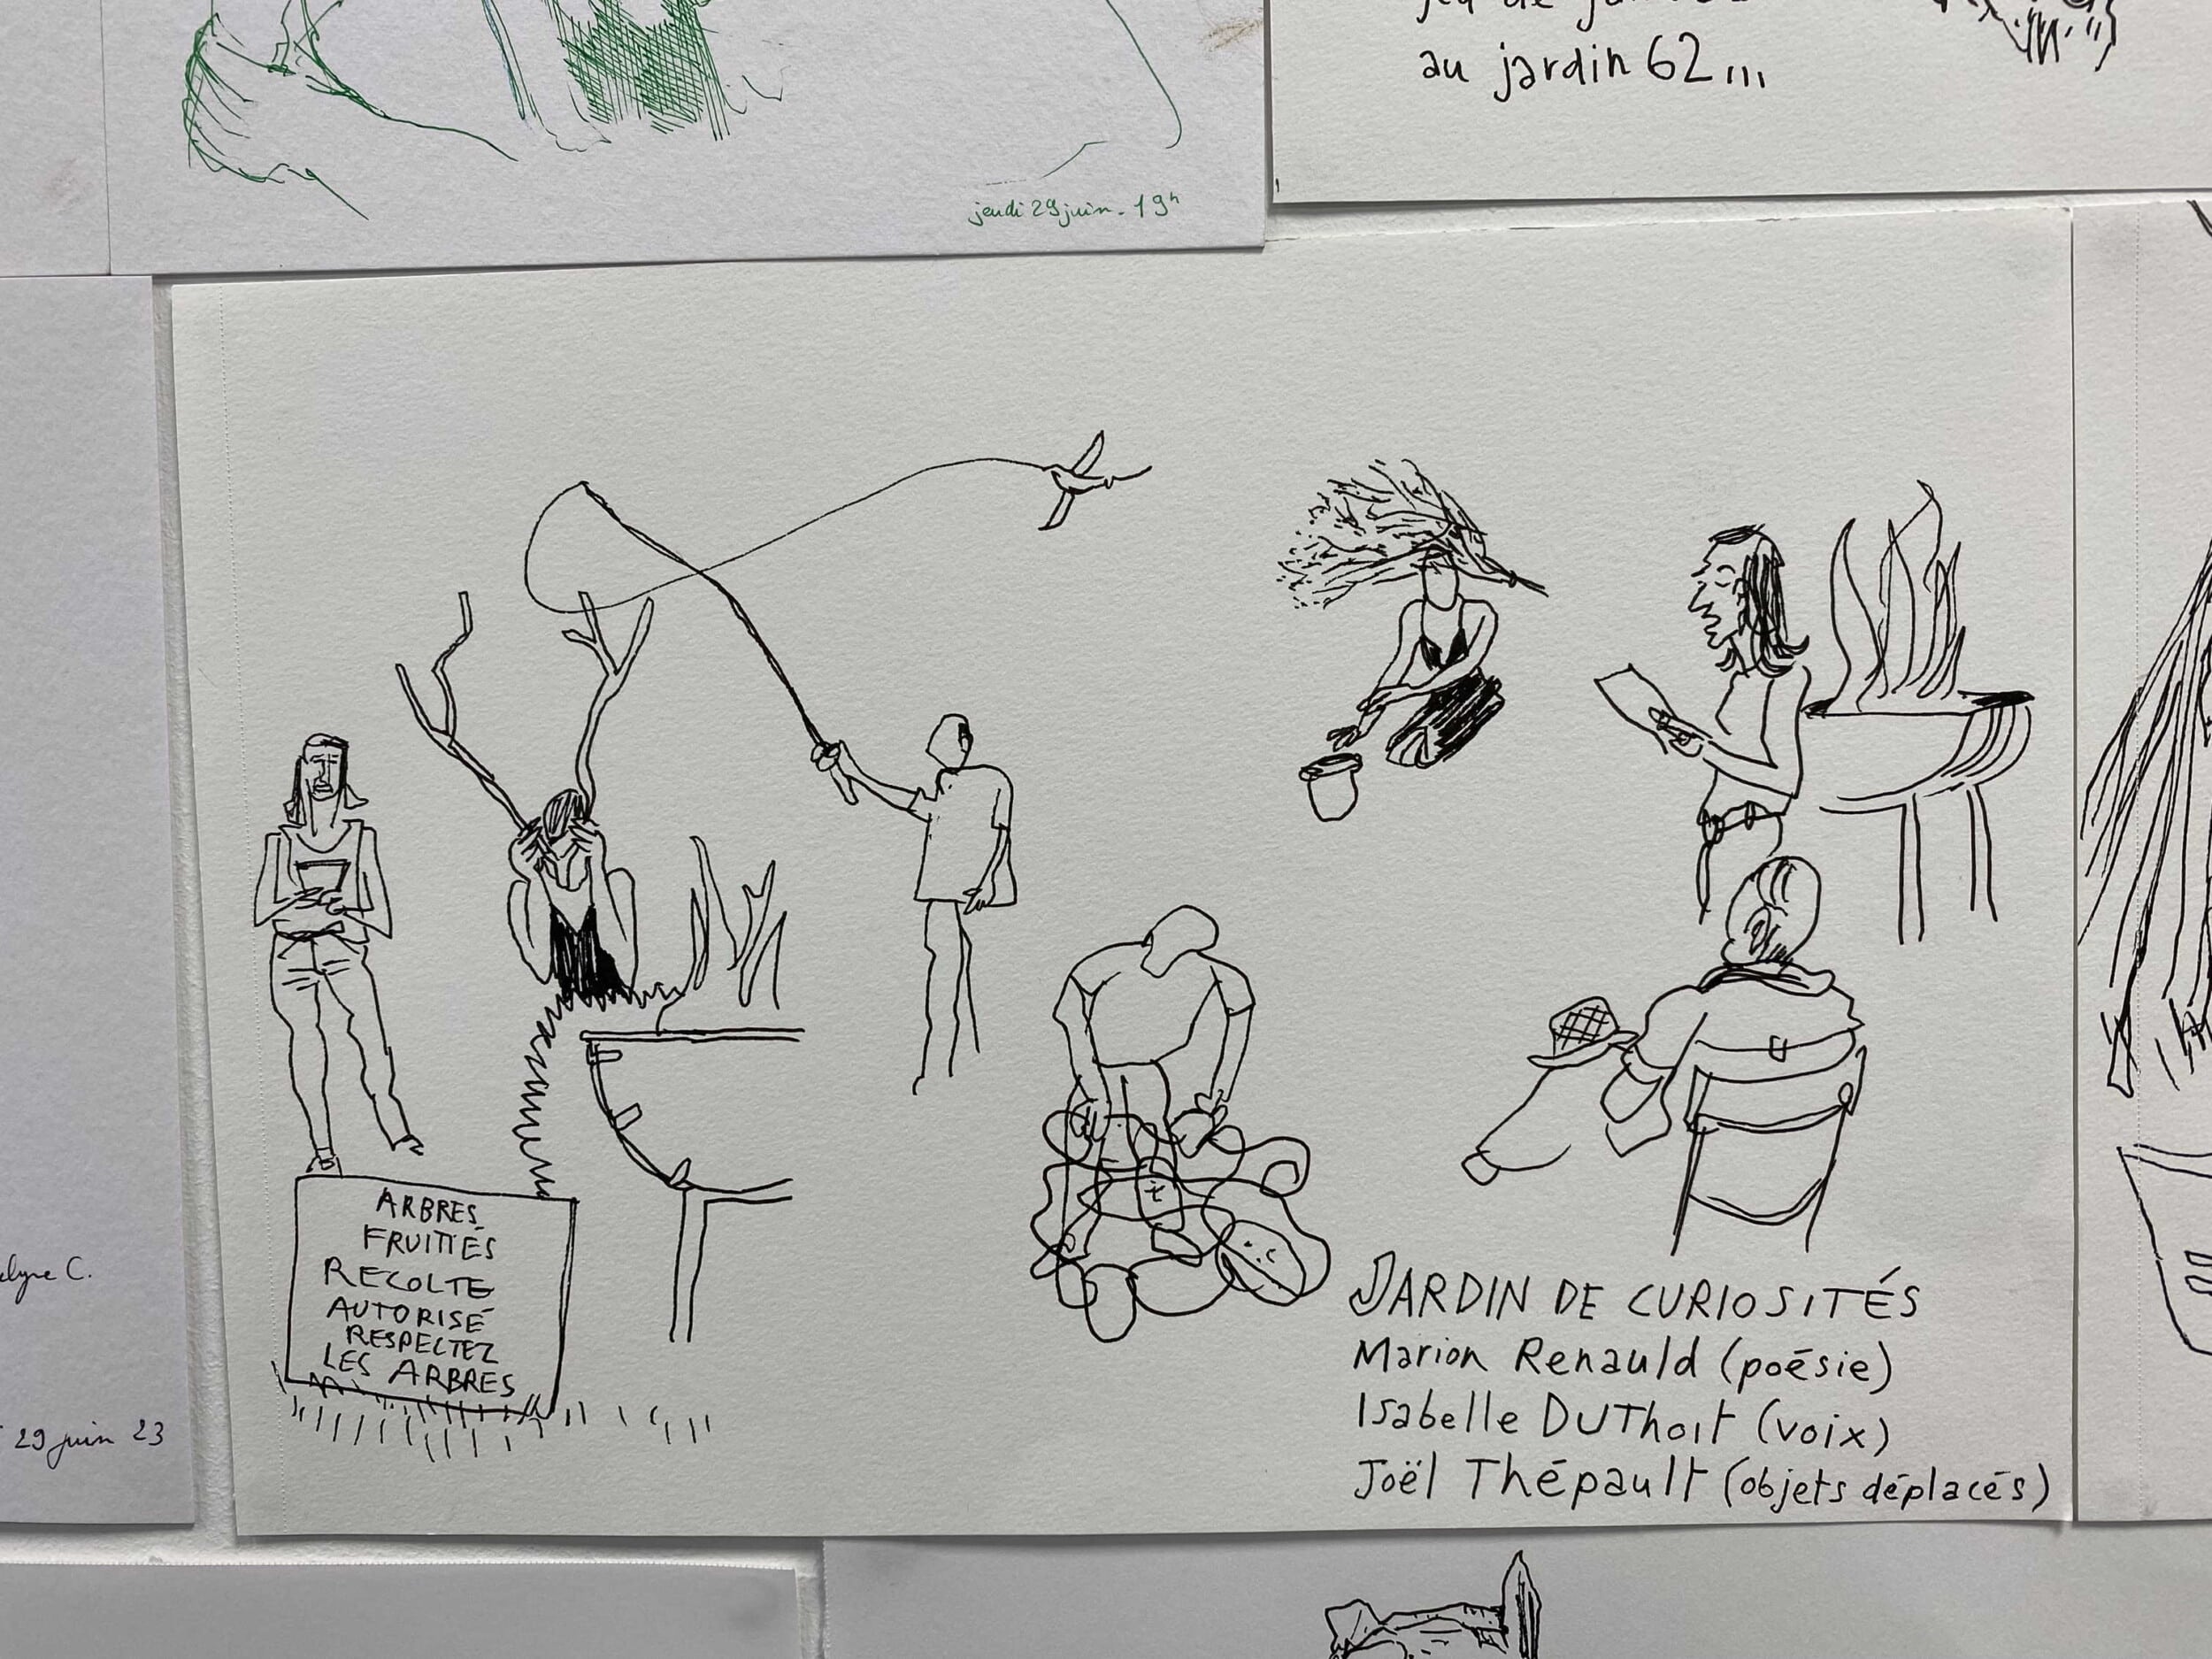 au jardin 62...
jeudi 29 juin - 19h
C.
29 juin 23
ARBRES
FRUITIÉS
RECOLTE
AUTORISÉ
RESPECTEZ
LES ARBRES
JARDIN DE CURIOSITÉS
Marion Renauld (poésie)
Isabelle DUThoit (voix)
Joël Thépault (objets déplacés)